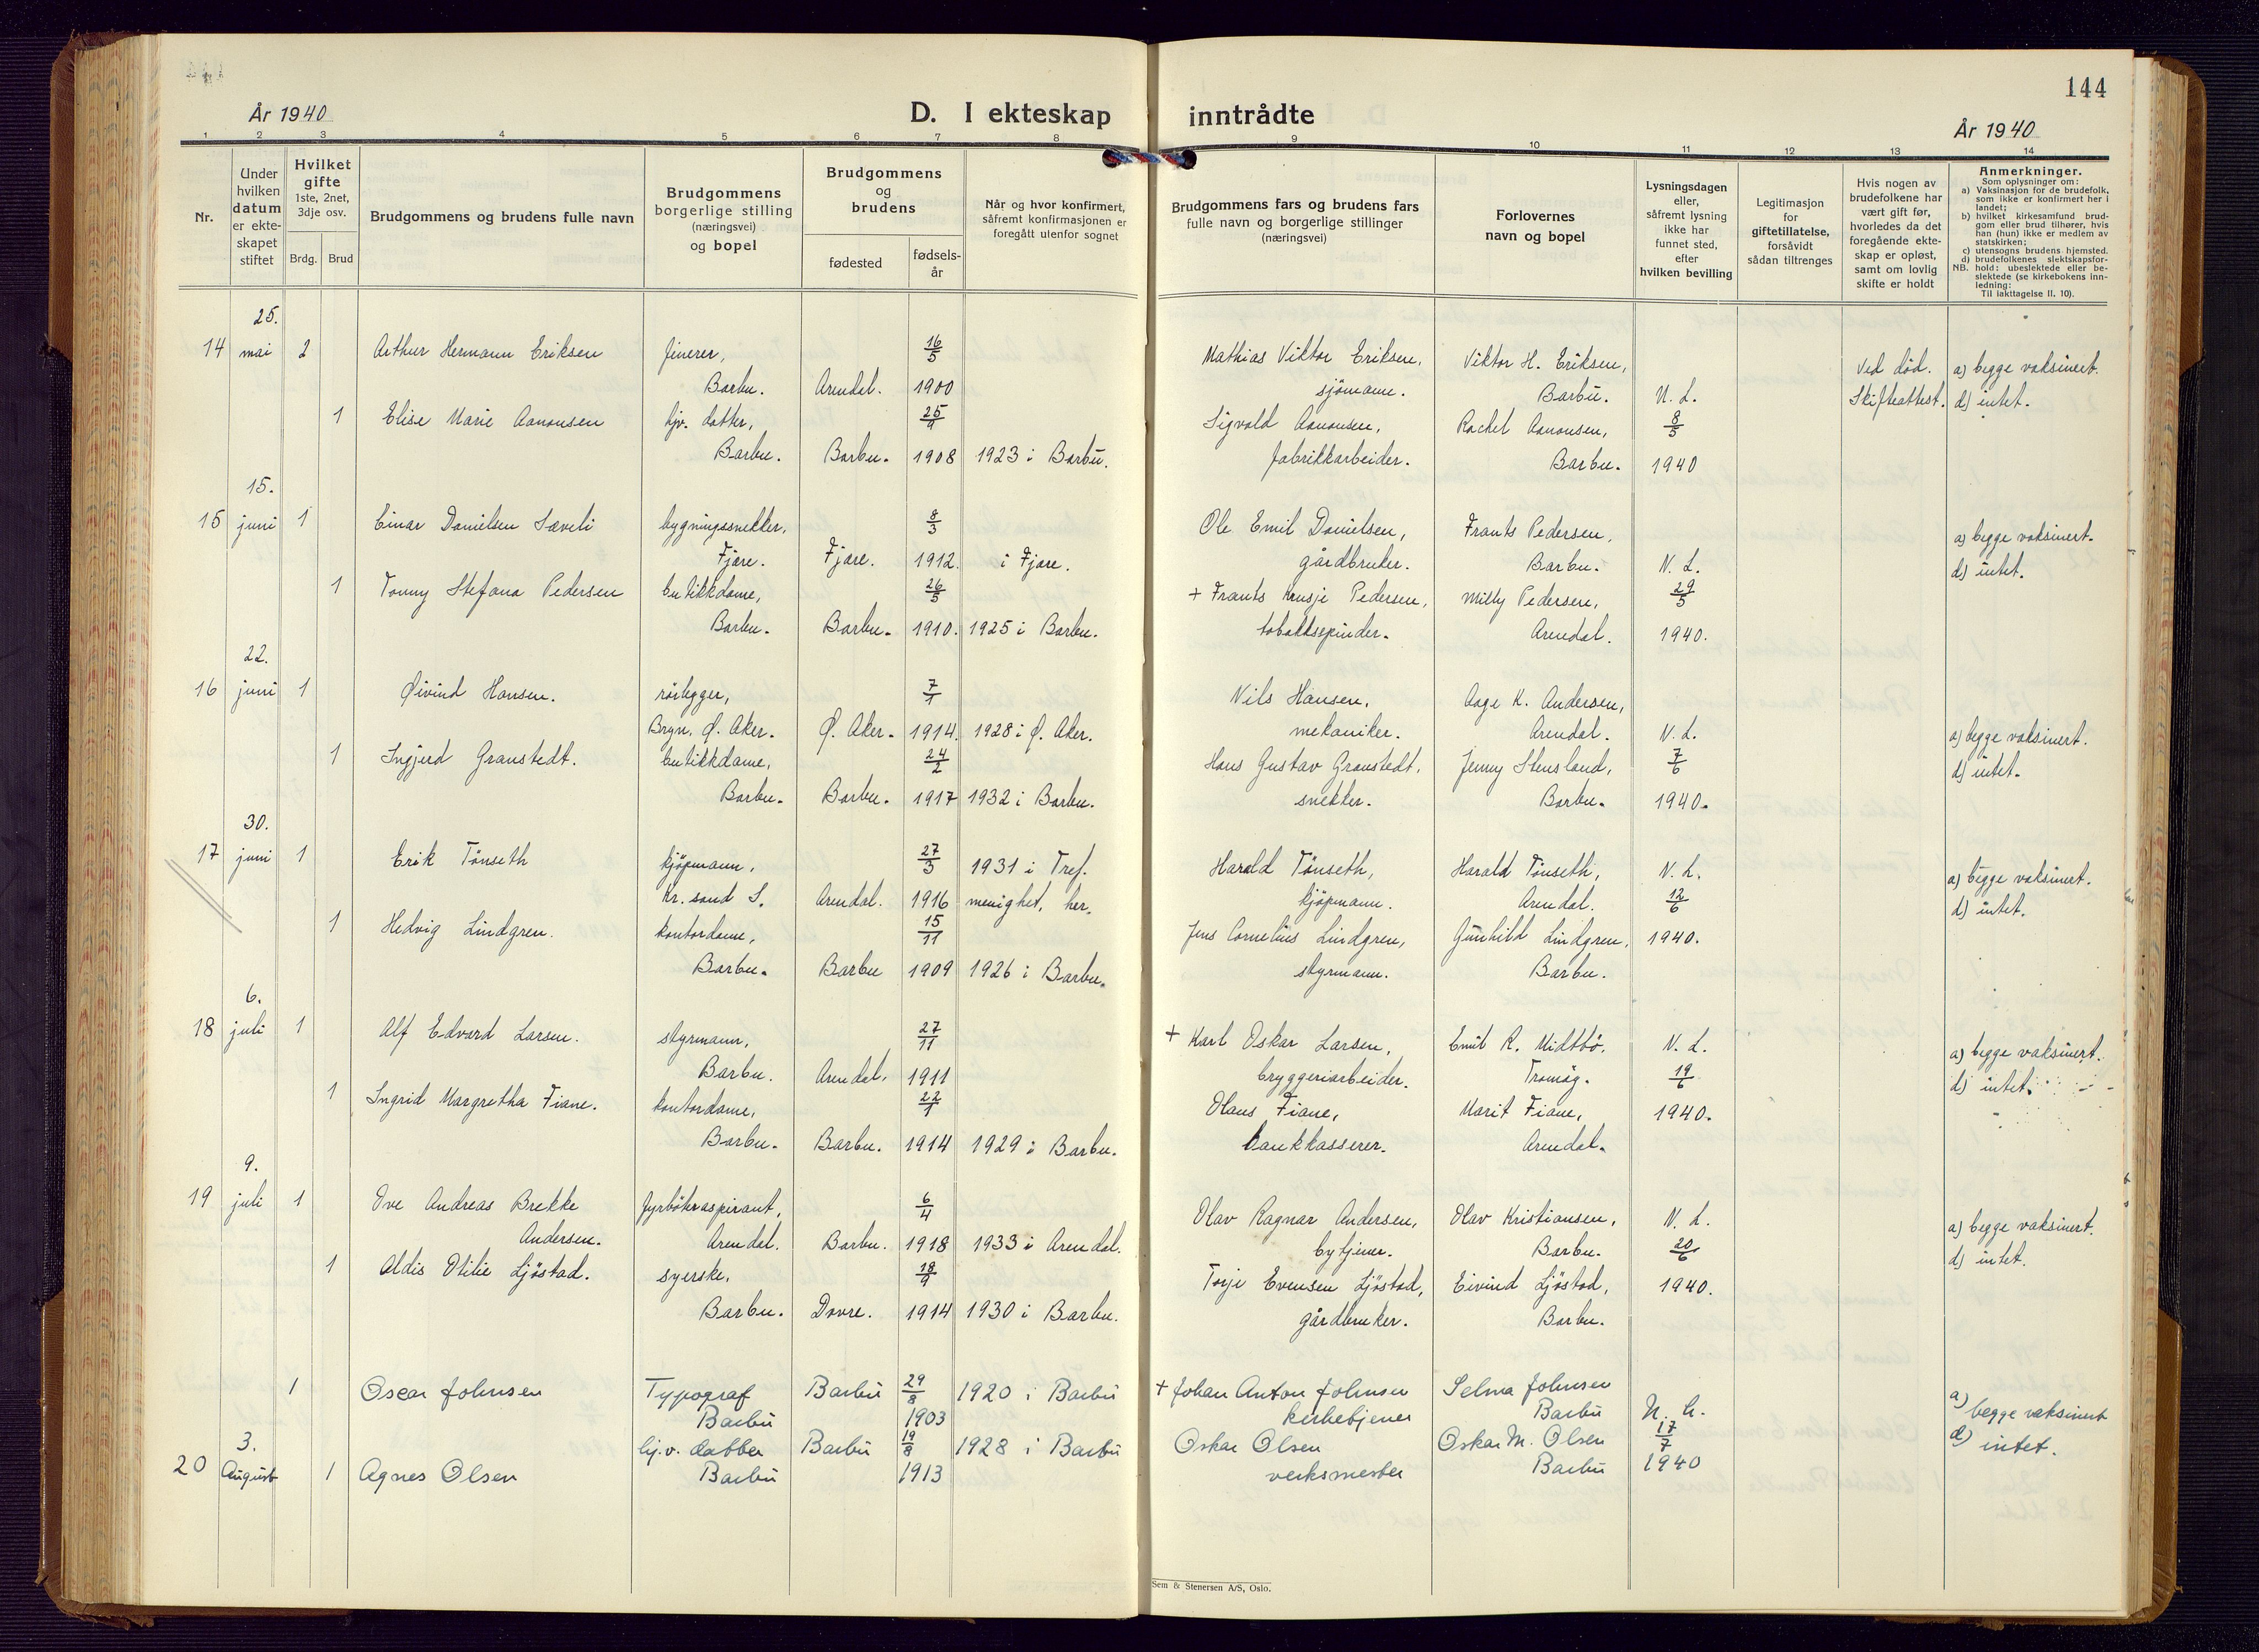 144
År 1940
D. I ekteskap inntrådte
År 1940
1 2 3 4 5 6 7 8 9 10 11 12 13 14
Nr.
Under hvilken datum er ekteskapet stiftet
Hvilket gifte 1ste, 2net, 3dje osv.
Brdg. Brud
Brudgommens og brudens fulle navn
Brudgommens borgerlige stilling (næringsvei) og bopel
Brudgommens og brudens
fødested
fødselsår
Når og hvor konfirmert, såfremt konfirmasjonen er foregått utenfor sognet
Brudgommens fars og brudens fars fulle navn og borgerlige stillinger (næringsvei)
Forlovernes navn og bopel
Lysningsdagen eller, såfremt lysning ikke har funnet sted, efter hvilken bevilling
Legitimasjon for giftetillatelse, forsåvidt sådan tiltrenges
Hvis nogen av brudefolkene har vært gift før, hvorledes da det foregående ekteskap er opløst, samt om lovlig skifte er holdt
Anmerkninger.
Som oplysninger om:
a) Vaksinasjon for de brudefolk, som ikke er konfirmert her i landet;
b) hvilket kirkesamfund brudgom eller brud tilhører, hvis han (hun) ikke er medlem av statskirken;
c) utensogns brudens hjemsted.
d) brudefolkenes slektskapsforhold: ubeslektede eller beslektede (se kirkebokens innledning:
NB.
Til iakttagelse II. 10).
25.
14 mai 2 Arthur Hermann Eriksen finerer, 16/5 Mathias Viktor Eriksen, Viktor H. Eriksen, Ved død. a) begge vaksinert.
Barbu. Arendal. 1900 sjömann. Barbu. N. L. Skifteattest. d) intet.
1 Elise Marie Aanonsen hjv. datter, 25/9 Sigvald Aanonsen, Rachel Aanonsen, 8/5
Barbu. Barbu. 1908 1923 i Barbu. fabrikkarbeider. Barbu. 1940
15.
15 juni 1 Einar Danielsen Sæveli bygningssnekker, 8/3 Ole Emil Danielsen, Frants Pedersen, a) begge vaksinert.
Fjære. Fjære. 1912. i Fjære. gårdbruker. Barbu. N. L. d) intet.
1 Tonny Stefana Pedersen butikkdame, 26/5 + Frants Krusje Pedersen, Milly Pedersen, 29/5
Barbu. Barbu. 1910. 1925 i Barbu. tobakksspinder. Arendal. 1940.
22.
16 juni 1 Øivind Hansen. rørlegger, 7/1 Nils Hansen, Aage K. Andersen,
Bryn, Ø. Aker. Ø. Aker. 1914. 1928 i Ø. Aker. mekaniker. Arendal. N. L. a) begge vaksinert.
1 Ingjerd Granstedt. butikkdame, 24/2 Hans Gustav Granstedt, Jenny Stensland, 7/6 d) intet.
Barbu. Barbu. 1917 1932 i Barbu. snekker. Barbu. 1940.
30.
17 juni 1 Erik Tönseth kjöpmann, 27/3 1931 i Tref. Harald Tönseth, Harald Tönseth, N. L. a) begge vaksinert.
Kr.sand S. Arendal. 1916 menighet, her. kjöpmann. Arendal. 12/6 d) intet.
1 Hedvig Lindgren. kontordame, 15/11 Jens Cornelius Lindgren, Gunhild Lindgren, 1940.
Barbu. Barbu 1909 1926 i Barbu. styrmann. Barbu.
6.
18 juli 1 Alf Edvard Larsen. styrmann, 27/11 + Karl Oskar Larsen, Emil R. Midttbö. N. L. a) begge vaksinert.
Barbu. Arendal. 1911 bryggeriarbeider. Tromöy. 19/6 d) intet.
1 Ingrid Margretha Fiane. kontordame, 22/1 Olaus Fiane, Marit Fiane, 1940.
Barbu. Barbu. 1914 1929 i Barbu. bankkasserer. Arendal.
9.
19 juli 1 Ove Andreas Brekke fyrböteraspirant, 6/4 Olav Ragnar Andersen, Olav Kristiansen, N. L. a) begge vaksinert.
Andersen. Arendal. Barbu. 1918 1933 i Arendal. bytjener. Barbu. 20/6 d) intet.
1 Aldis Otilie Ljöstad. syerske, 18/9 Torje Evensen Ljöstad, Eivind Ljöstad, 1940.
Barbu. Dovre. 1914 1930 i Barbu. gårdbruker. Barbu.
1 Oscar Johnsen Typograf Barbu 29/8 1920 i Barbu + Johan Anton Johnsen Selma Johnsen a) begge vaksinert
Barbu 1903 kirketjener Barbu N. L.
3. hj.v. datter Barbu 19/8 1928 i Barbu Oskar Olsen Oskar M. Olsen 17/7 d) intet.
20 August 1 Agnes Olsen Barbu 1913 verksmester Barbu 1940
Sem & Stenersen A/S, Oslo.